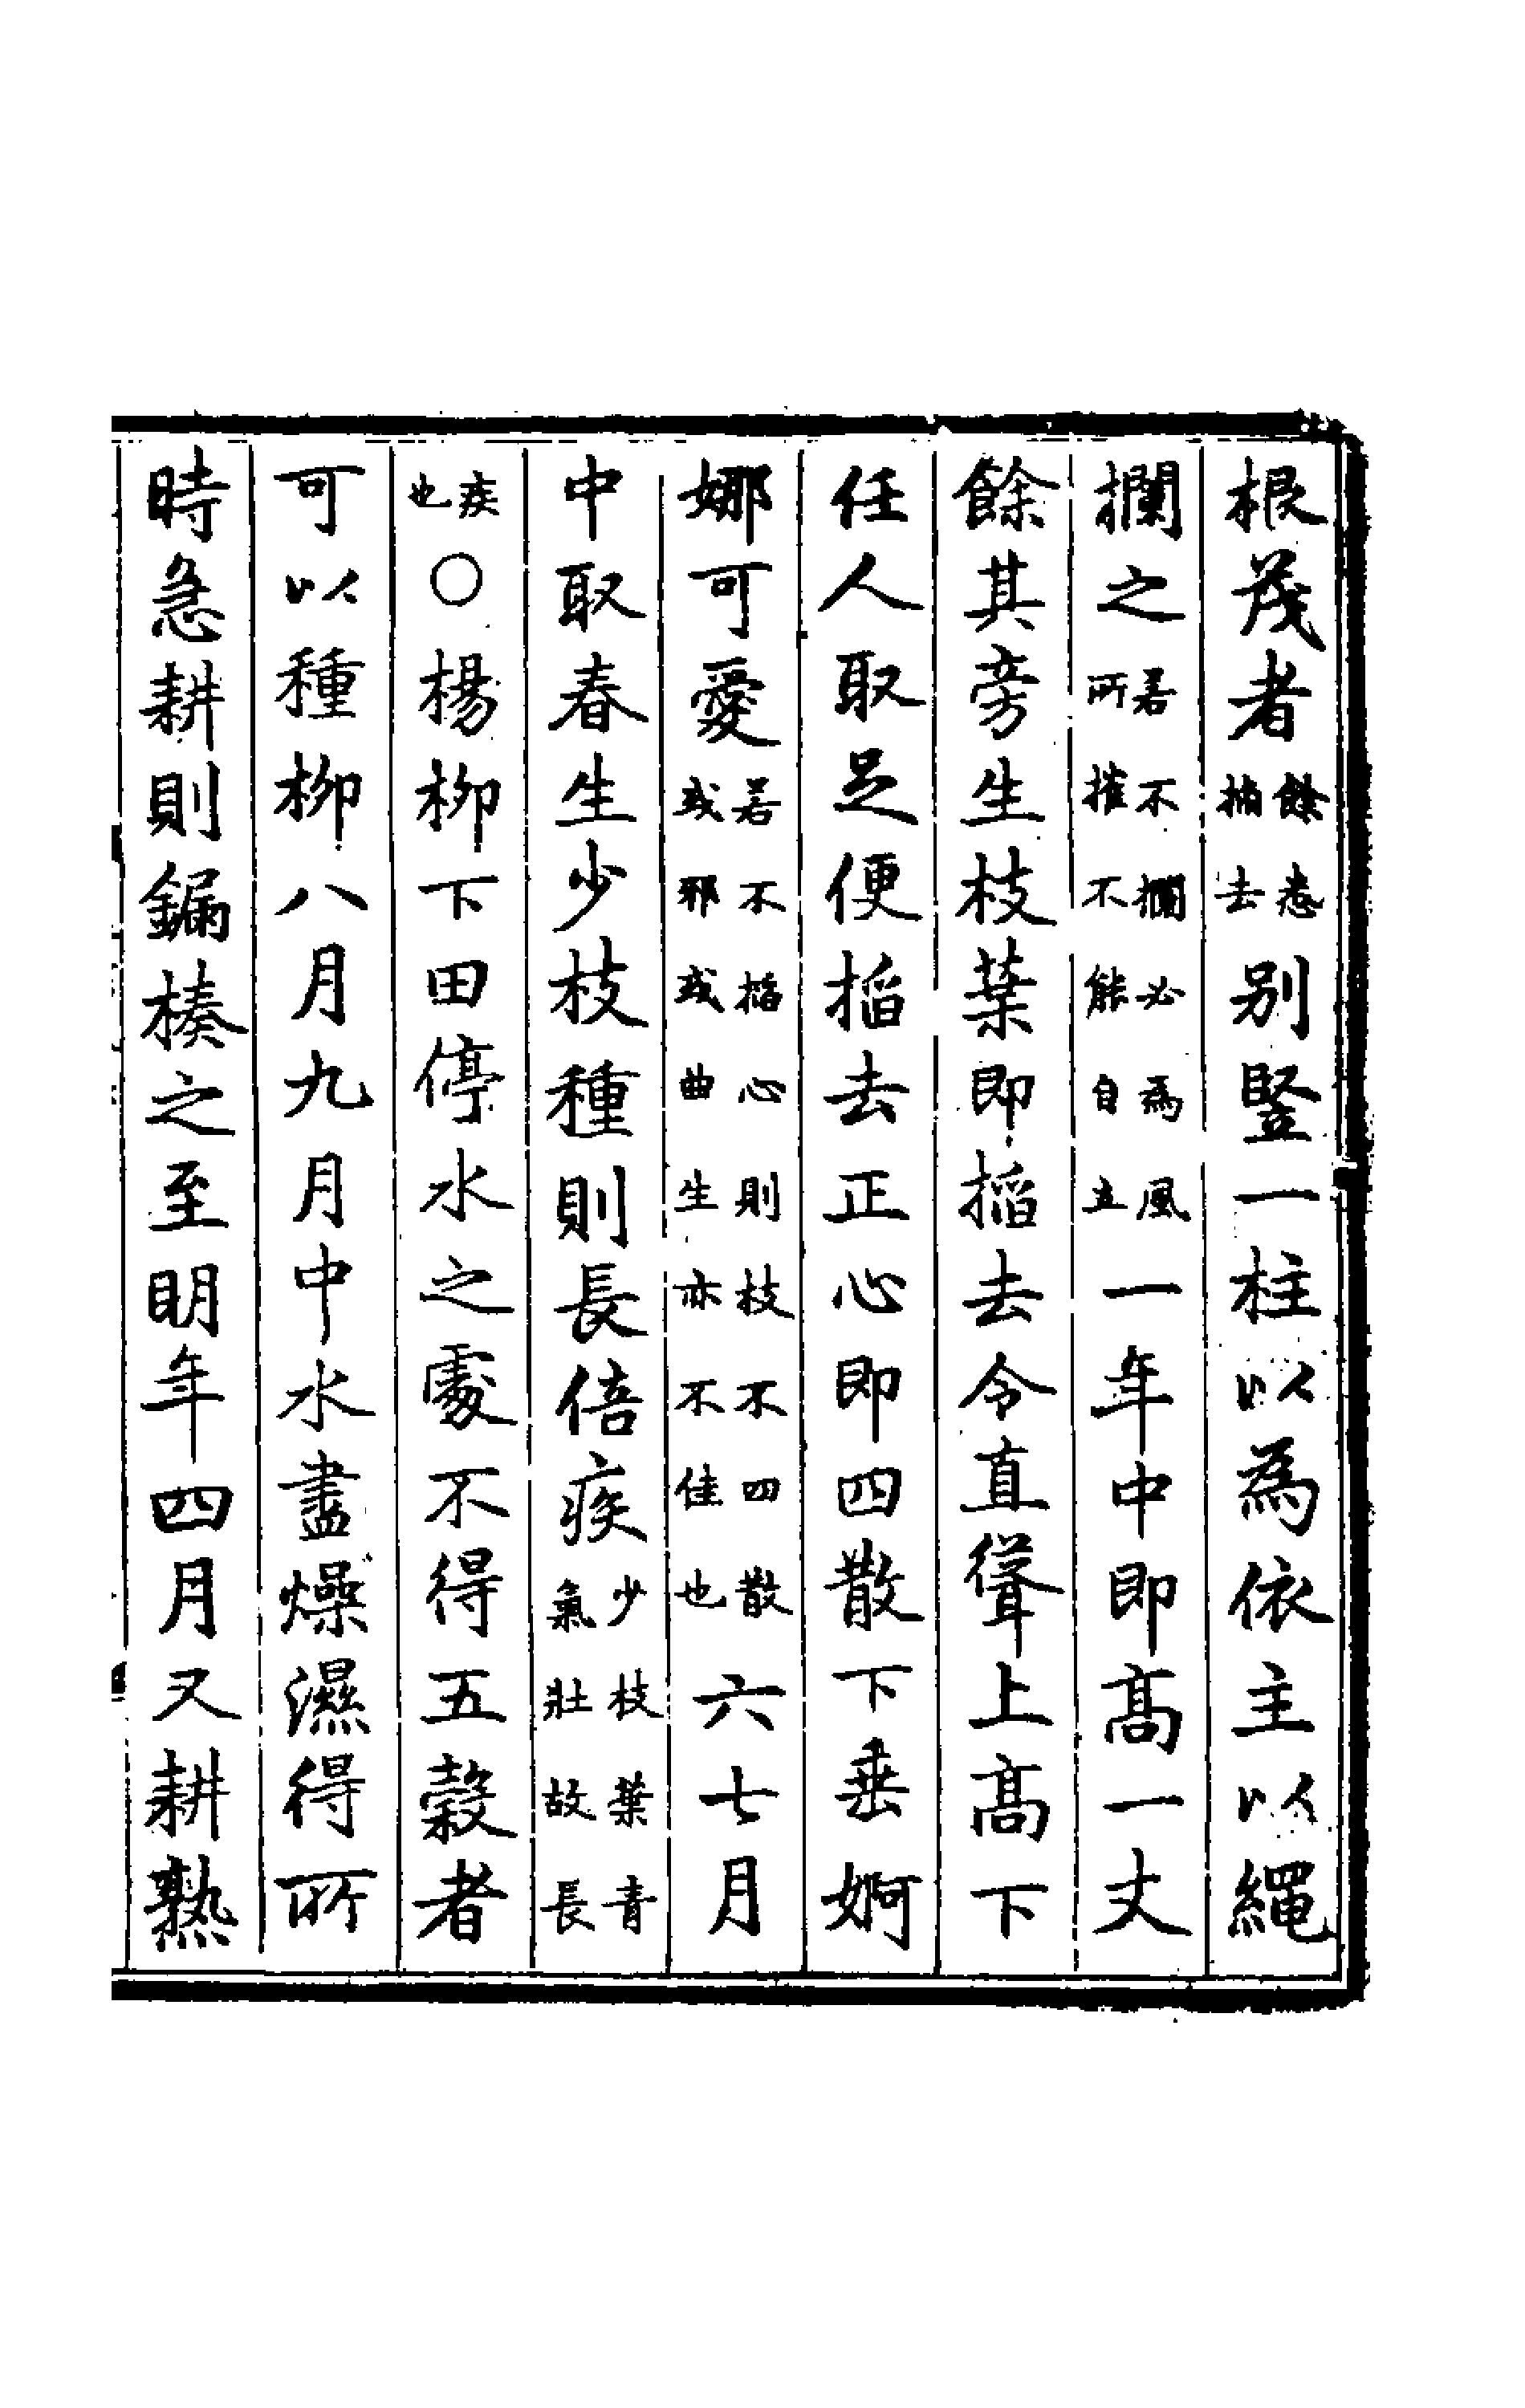 根茂者餘悉掐去别竪一柱以為依主以繩
攔之若不攔必為風所摧不能自立一年中即髙一丈
餘其旁生枝葉即掐去令直聳上髙下
任人取足便掐去正心即四散下垂婀
娜可愛若不掐心則枝不四散或邪或曲生亦不佳也六七月
中取春生少枝種則長倍疾少枝葉青氣壯故長
疾也〇楊柳下田停水之處不得五穀者
可以種柳八月九月中水盡燥濕得所
時急耕則鏂楱之至明年四月又耕熟